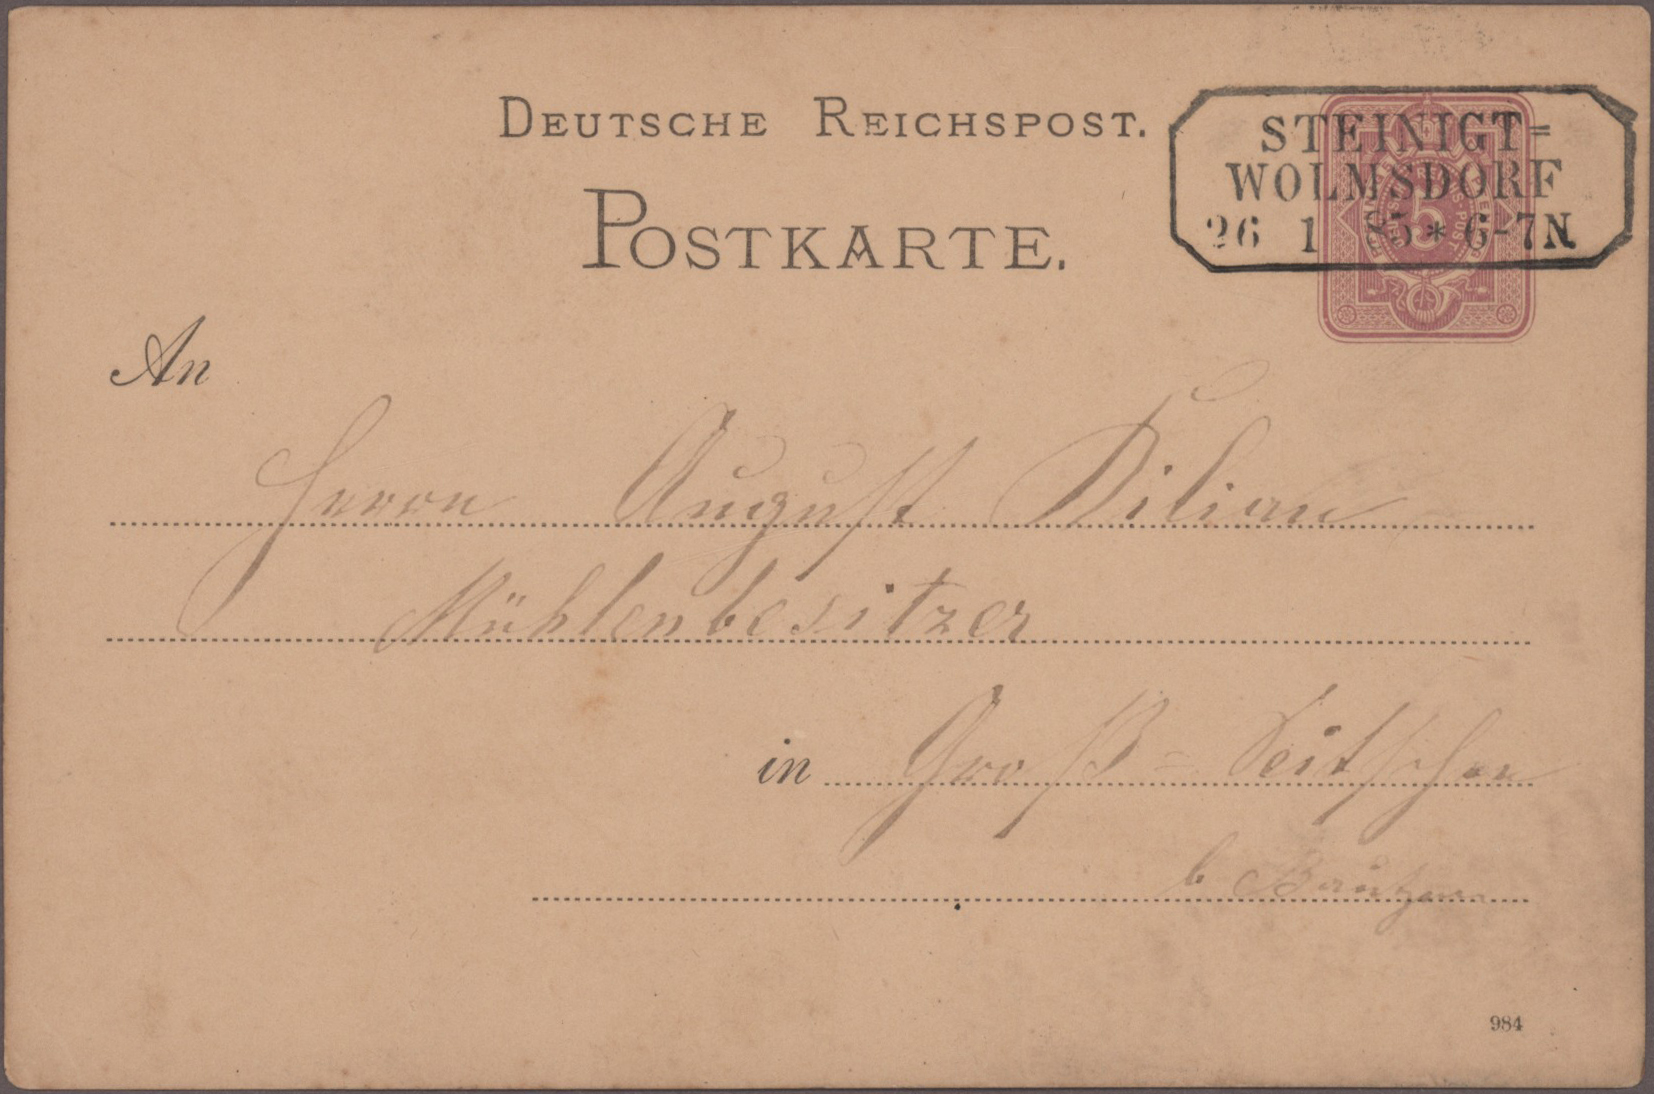 DEUTSCHE REICHSPOST.
POSTKARTE.
STEINIGT=
WOLMSDORF
26 1 85 * 6-7N
5
An
Herrn August Kilian
Mühlenbesitzer
in Groß=Seitschen
b Bautzen
984